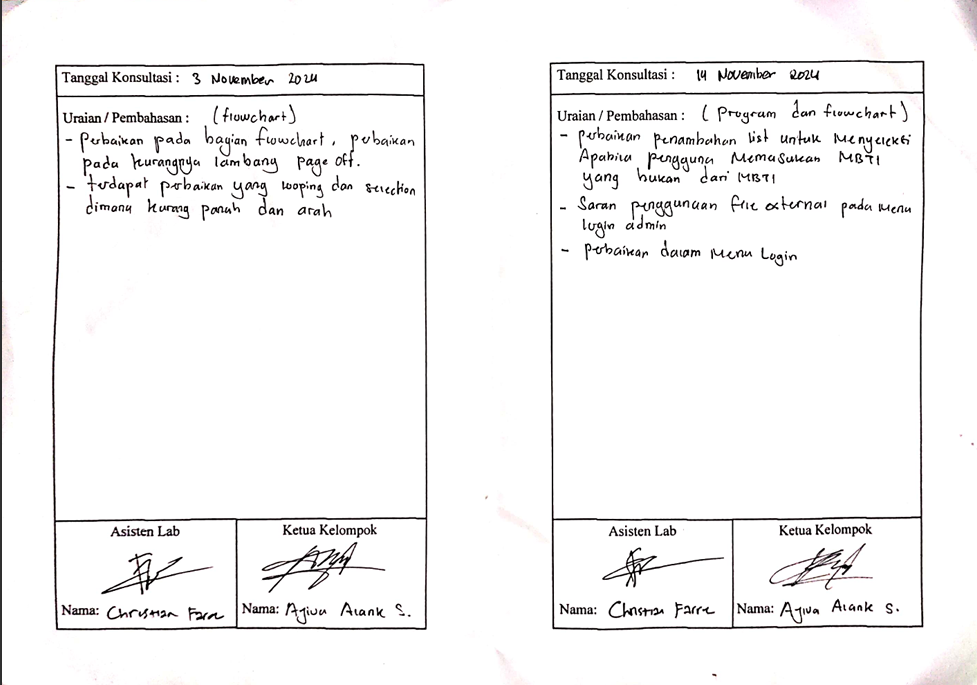 Tanggal Konsultasi : 3 November 2024
Uraian / Pembahasan : (flowchart)
- perbaikan pada bagian flowchart, perbaikan
pada kurangnya lambang page off.
- terdapat perbaikan yang looping dan selection
dimana kurang panah dan arah
Asisten Lab
Ketua Kelompok
Nama: Christian Farre
Nama: Ajiwa Alank S.
Tanggal Konsultasi : 14 November 2024
Uraian / Pembahasan : (Program dan flowchart)
- perbaikan penambahan list untuk Menyeleksi
Apabila pengguna Memasukan MBTI
yang bukan dari MBTI
- Saran penggunaan file external pada Menu
login admin
- perbaikan dalam Menu Login
Asisten Lab
Ketua Kelompok
Nama: Christian Farre
Nama: Ajiwa Alank S.